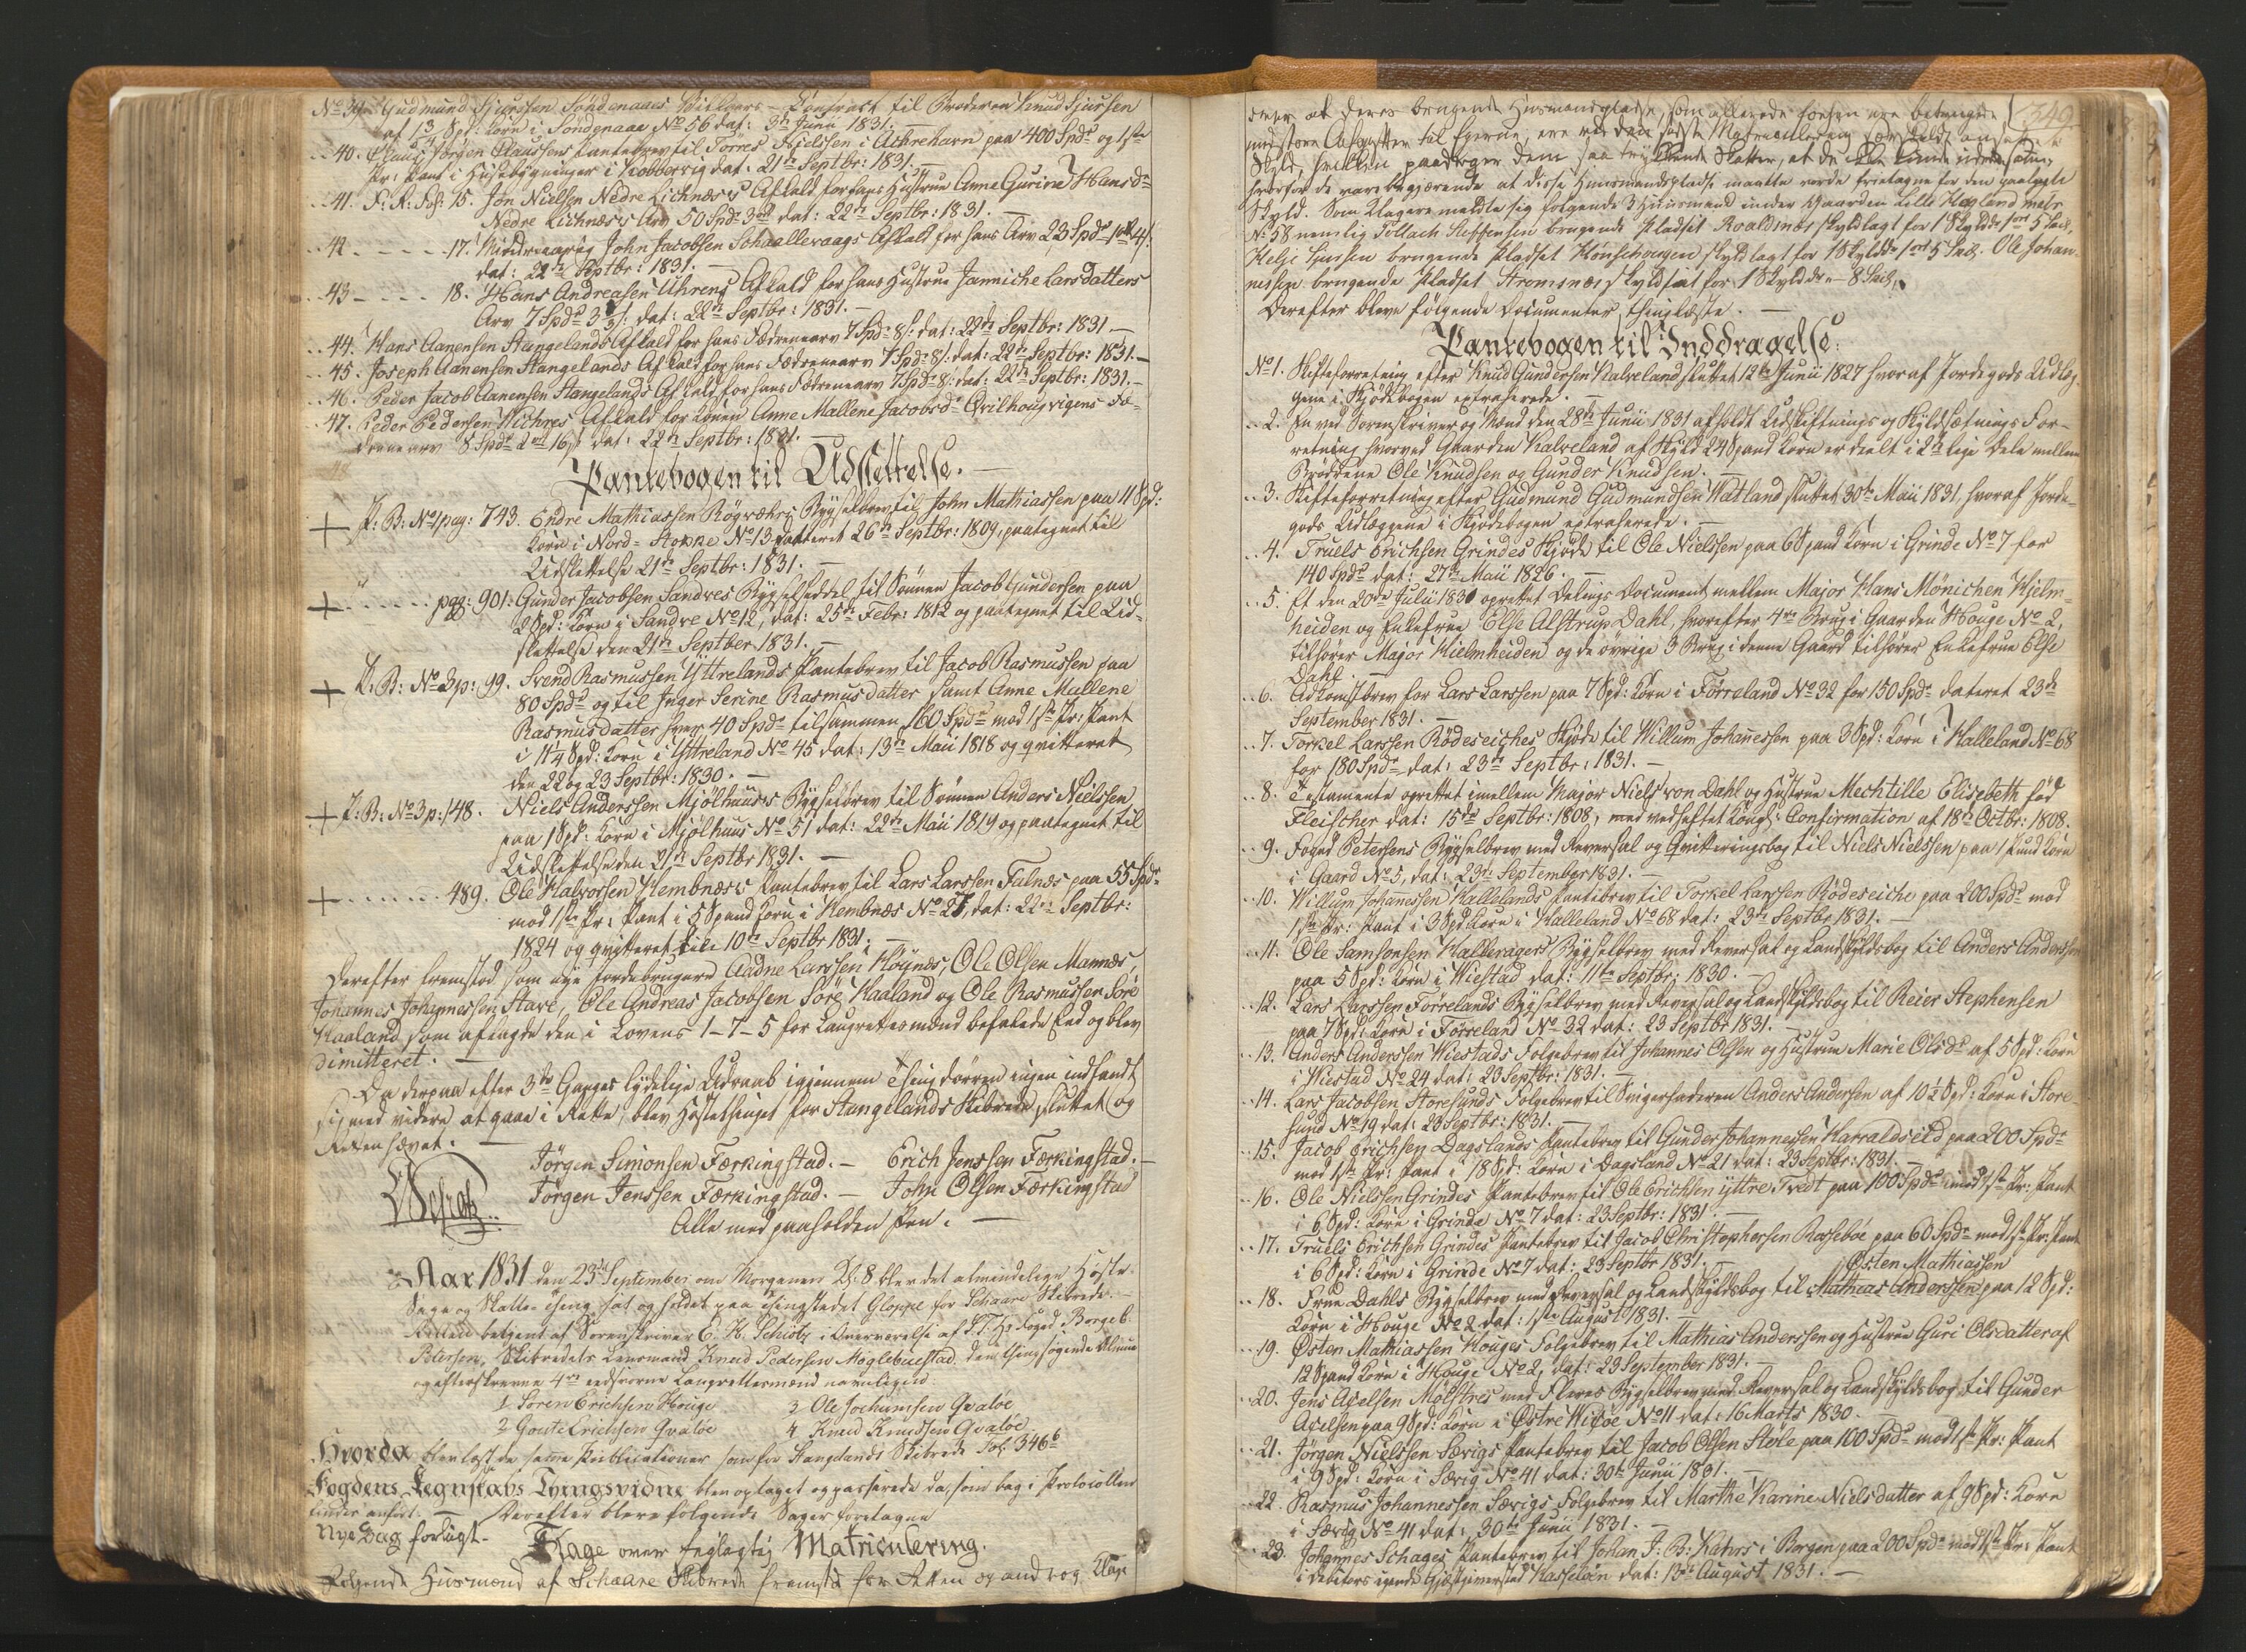 No 39. Gudmund Sjursen Söndenaaes Vilkaars-Contract til Broderen Knud Sjursen
af 1 3/5 Spd: Korn i Söndenaae No 56 dat: 3die Junii 1831. —
.. 40. Claus Jörgen Claussens Pantebrev til Törres Nielssen i Achrehavn paa 400 Spdr og 1ste
Pr: Pant i Huusebygninger i Kobbervig dat: 21de Septbr: 1831. —
.. 41. F. R. Fol: 15. Jon Nielssen Nedre Lichnæs's Afkald for hans Hustrue Anne Gurine Hansdr
Nedre Lichnæs's Arv 50 Spdr 3 dat: 22de Septbr: 1831. —
.. 42 - - - - 17. Mindreaarig John Jacobsen Schaallevaags Afkald for hans Arv 23 Spdr 1 ort 4 s.
dat: 22de Septbr: 1831. —
.. 43 - - - - 18. Hans Andreasen Uhrens Afkald for hans Hustrue Janniche Larsdatters
Arv 7 Spdr dat: 22de Septbr: 1831. —
.. 44. Hans Aanensen Stangelands Afkald for hans Fædrenearv 7 Spdr 8 s. dat: 22de Septbr: 1831. —
.. 45. Joseph Aanensen Stangelands Afkald for hans Fædrenearv 7 Spdr 8 s. dat: 22de Septbr: 1831. —
.. 46. Peder Jacob Aanensen Stangelands Afkald for hans Fædrenearv 7 Spdr 8 s. dat: 22de Septbr: 1831. —
.. 47. Peder Pedersen Wichres Afkald for Konen Anne Mallene Jacobsdr Qvilhougvigens Fæ-
drenearv 8 Spdr 2 ort 16 s. dat: 22de Septbr: 1831. —
Pantebogen til Udslettelse. —
P: B: No 1 pag: 743. Endre Mathiassen Rögvæhrs Bygselbrev til John Mathiassen paa 11 Spd:
Korn i Nord-Stokke No 13 datteret 26de Septbr: 1809, paategnet til
Udslettelse 21de Septbr: 1831. —
pag: 901. Gunder Jacobsen Sandves Bygselseddel til Sönnen Jacob Gundersen paa
2 Spd: Korn i Sandve No 12, dat: 25de Febr: 1812 og paategnet til Ud-
slettelse den 21de Septber 1831. —
P: B: No 3 p: 99. Svend Rasmussen Yttrelands Pantebrev til Jacob Rasmussen paa
80 Spdr og til Inger Serine Rasmusdatter samt Anne Mallene
Rasmusdatter hver 40 Spdr tilsammen 160 Spdr mod 1ste Pr: Pant
i 11 1/4 Spd: Korn i Yttreland No 45 dat: 13de Maii 1818 og qvitteret
den 22 og 23 Septbr: 1830. —
P: B: No 3 p: 148. Niels Anderssen Mjölhuus's Bygselbrev til Sönnen Anders Nielssen
paa 1 Spd: Korn i Mjölhuus No 51 dat: 22de Maii 1819 og paategnet til
Udslettelse den 21de Septbr 1831. —
489. Ole Halvorsen Hembnæs's Pantebrev til Lars Larssen Falnæs paa 55 Spdr
mod 1ste Pr: Pant i 5 Spand Korn i Hembnæs No 25, dat: 22de Septbr:
1824 og qvitteret den 10de Septbr 1831. —
Derefter fremstod som nye Jordebrugere Aadne Larssen Höynæs, Ole Olsen Mannæs
Johannes Johannessen Stave, Ole Andreas Jacobsen Söre Haaland og Ole Rasmussen Söre
Haaland som aflagde den i Lovens 1-7-5 for Laugrettesmænd befalede Eed og blev
dimitteret. —
Da derpaa efter 3de Ganges lydelige Udraab igjennem Thingdörren ingen indfandt
sig med videre at gaae i Rette, blev Höstethinget for Stangelands Skibrede sluttet og
Retten hævet. —
Schiötz
Jörgen Simonsen Færkingstad. — Erich Jenssen Færkingstad. —
Jörgen Jenssen Færkingstad. — John Olsen Færkingstad
Alle med paaholden Pen. —
Aar 1831 den 23de September om Morgenen Kl: 8 blev det almindelige Höste-
Sage og Skatte-Thing sat og holdet paa Thingstedet Gloppe for Schaare Skibrede. —
Retten betjent af Sorenskriver E. H. Schiötz i Overværelse af S. T. Hr Foged Borgeb.
Petersen, Skibredets Lensmand Knud Pedersen Möglebuestad den thingsögende Almue
og efterskrevne 4re eedsvorne Laugrettesmænd navnligen:
1 Sören Erichsen Houge 3 Ole Jochumsen Qvaløe
2 Goute Erichsen Qvaløe 4 Knud Knudsen Qvaløe
Hvorda blev læst de samme Publicationer som for Stangelands Skibrede Fol 346b
Fogdens Regnskabs Tingsvidne blev optaget og passerede da, som bag i Protocollen
findes anfört. — Derefter bleve følgende Sager foretagne
Nye Sag forligt. — Klage over feylagtig Matriculering.
Følgende Huusmænd af Schaare Skibrede fremstod for Retten og androg Klage
349
over at deres brugende Huusmandspladse, som allerede forhen ere betyngede
med store Afgifter til Eyerne, ere ved den sidste Matriculering særskilt ansat i
Skyld, hvilken paadrager dem saa trykkende Skatter, at de ikke kunde udrede samme,
hvorfor de vare begjærende at disse Huusmandspladse maatte vorde fritagne for den paalagte
Skyld. Som Klagere meldte sig følgende 3 Huusmænd under Gaarden Lille Hapland Matr
No 58 nemlig Tollach Steffensen brugende Pladset Roaldsnæs skyldlagt for 1 Skyldd 1 ort 5 Sk,
Helje Sjursen brugende Pladset Hönsehougen skyldlagt for 1 Skylddr 1 ort 5 Sk. Ole Johan-
nessen brugende Pladset Stromsnæs skyldsat for 1 Skylddr „ — 8 Sk.
Derefter bleve følgende Documenter thinglæste. —
Pantebogen til Inddragelse.
No 1. Skifteforretning efter Knud Gundersen Kalveland sluttet 12te Junii 1827 hvoraf Jordegods Udlæg-
gene i Skjödebogen extraherede. —
.. 2. En ved Sorenskriver og Mænd den 28de Junii 1831 afholdt Udskiftnings og Skyldsætnings For-
retning hvorved Gaarden Kalveland af Skyld 24 Spand Korn er deelt i 2de lige Dele mellem
Brödrene Ole Knudsen og Gunder Knudsen. —
.. 3. Skifteforretning efter Gudmund Gudmundsen Watland sluttet 30te Maii 1831, hvoraf Jorde-
gods Udlæggene i Skjödebogen extraherede. —
.. 4. Truels Erichsen Grindes Skjöde til Ole Nielssen paa 6 Spand Korn i Grinde No 7 for
140 Spdr dat: 27de Maii 1826. —
.. 5. Et den 20de Julii 1831 oprettet Delings Document mellem Major Hans Mönichen Hjelm-
heiden og Enkefrue Else Alstrup Dahl, hvorefter 4re Brug i Gaarden Houge No 2,
tilhører Major Hielmheiden og de övrige 3 Brug i denne Gaard tilhører Enkefrue Else
Dahl. —
.. 6. Adkomstbrev for Lars Larssen paa 7 Spd: Korn i Förreland No 32 for 150 Spdr dateret 23de
September 1831. —
.. 7. Torkel Larssen Rödeseiches Skjöde til Willum Johanessen paa 3 Spd: Korn i Halleland No 68
for 180 Spdr dat: 23de Septbr: 1831. —
.. 8. Testamente oprettet imellem Major Niels von Dahl og Hustrue Mechtille Elisebeth fød
Fleischer dat: 15de Septbr: 1808, med vedheftet Kongl: Confirmation af 18de Octbr: 1808.
.. 9. Foged Petersens Bygselbrev med Reversal og Qvitteringsbog til Niels Nielssen paa 1 Pund Korn
i Gaard No 5, dat: 23de September 1831. —
.. 10. Willum Johanessen Hallelands Pantebrev til Torkel Larssen Rödeseiche paa 200 Spdr mod
1ste Pr: Pant i 3 Spd Korn i Halleland No 68 dat: 23de Septbr 1831. —
.. 11. Ole Samsonsen Halleragers Bygselbrev med Reversal og Landskyldsbog til Anders Andersen
paa 5 Spd: Korn i Wiestad dat: 11te Septbr: 1830. —
.. 12. Lars Larssen Förrelands Bygselbrev med Reversal og Landskyldsbog til Reier Stephensen
paa 7 Spd: Korn i Förreland No 32 dat: 23 Septbr 1831. —
.. 13. Anders Anderssen Wiestads Folgebrev til Johannes Olsen og Hustrue Marie Olsdr af 5 Spd: Korn
i Wiestad No 24 dat: 23 Septbr: 1831. —
.. 14. Lars Jacobsen Storesunds Folgebrev til Svigerfaderen Anders Andersen af 10 1/2 Spd: Korn i Store-
sund No 19 dat: 23 Septbr: 1831. —
.. 15. Jacob Erichsen Dagslands Pantebrev til Gunder Johannessen Harraldseid paa 200 Spdr
mod 1ste Pr: Pant i 18 Spd: Korn i Dagsland No 21 dat: 23 Septbr: 1831. —
.. 16. Ole Nielssen Grindes Pantebrev til Ole Erichsen yttre Tvedt paa 100 Spdr mod 1ste Pr: Pant
i 6 Spd: Korn i Grinde No 7 dat: 23 Septbr: 1831. —
.. 17. Truels Erichsen Grindes Pantebrev til Jacob Christophersen Rossebøe paa 60 Spdr mod 1ste Pr: Pant
i 6 Spd: Korn i Grinde No 7 dat: 23 Septbr 1831. —
Østen Mathiassen
.. 18. Frue Dahls Bygselbrev med Reversal og Landskyldsbog til Mathias Anderssen paa 12 Spd:
Korn i Houge No 2 dat: 1ste August 1831. —
.. 19. Østen Mathiassen Houges Folgebrev til Mathias Anderssen og Hustrue Guri Olsdatter af
12 Spand Korn i Houge No 2, dat: 23 September 1831. —
.. 20. Jens Acelsen Molstres med Fleres Bygselbrev med Reversal og Landskyldsbog til Gunder
Acelsen paa 9 Spd: Korn i Østre Wiøe No 11 dat: 16 Marts 1830. —
.. 21. Jörgen Nielssen Særigs Pantebrev til Jacob Olsen Steile paa 100 Spdr mod 1ste Pr: Pant
i 9 Spd: Korn i Særig No 41 dat: 30te Junii 1831. —
.. 22. Rasmus Johannessen Særigs Folgebrev til Marthe Karine Nielsdatter af 9 Spd: Korn
i Særig No 41 dat: 30te Junii 1831. —
.. 23. Johannes Schages Pantebrev til Johan J. B. Kahrs i Bergen paa 200 Spdr mod 1ste Pr: Pant
i Debitors ejende Gjæstgiversted Hasseløen dat: 13de August 1831. —